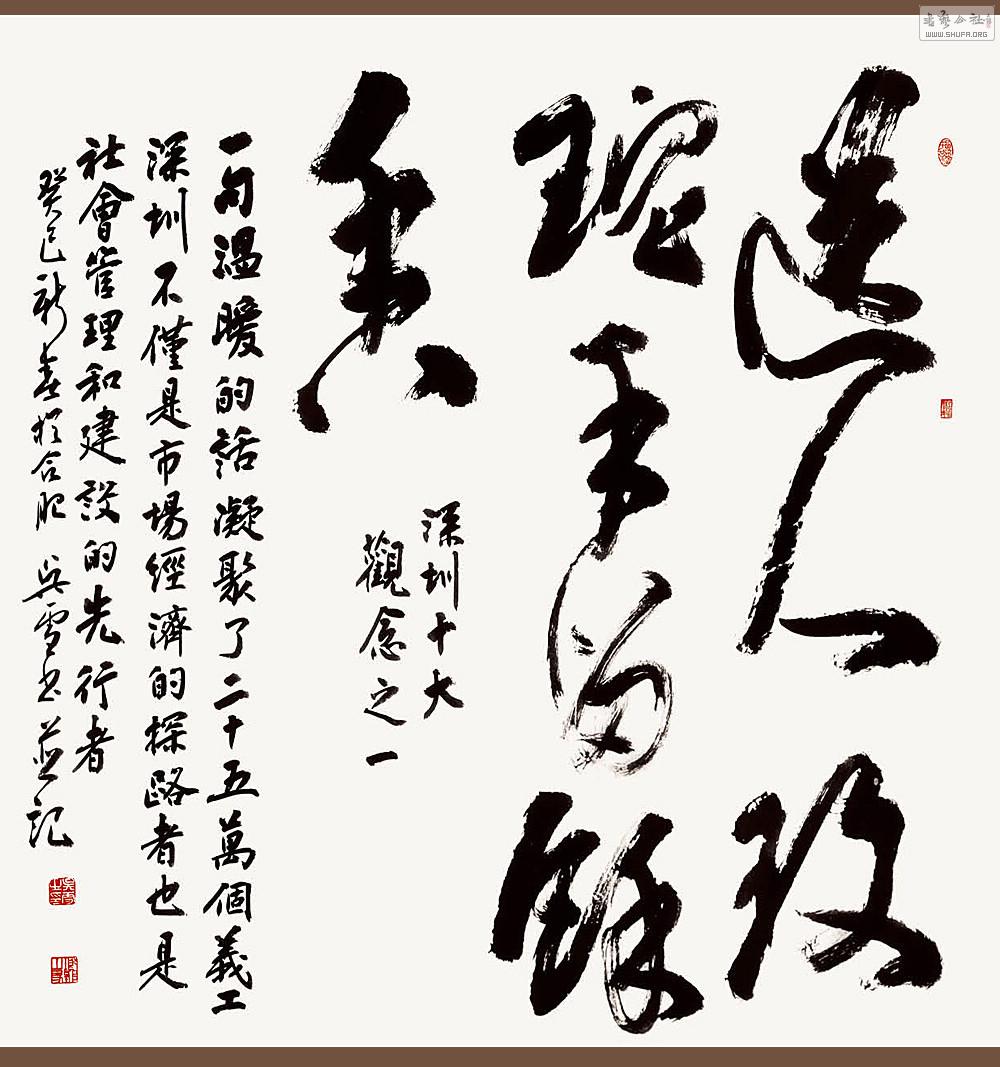 送人玫
瑰手留餘
香
深圳十大
觀念之一
一句溫暖的話凝聚了二十五萬個義工
深圳不僅是市場經濟的探路者也是
社會管理和建設的先行者
癸巳新春於合肥 吳雪書並記
書藝公社
WWW.SHUFA.ORG